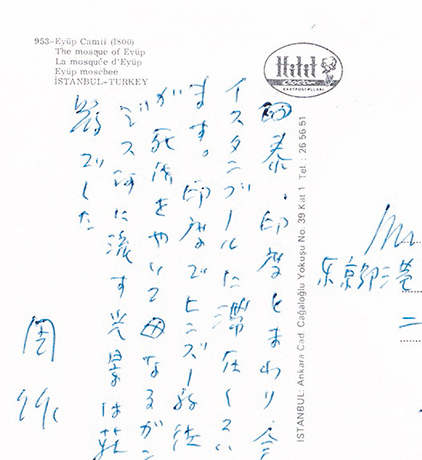 953-Eyüp Camii (1800)
The mosque of Eyüp
La mosquée d'Eyüp
Eyüp moschee
İSTANBUL-TURKEY
Hitit
KARTPOSTALLARI
İSTANBUL: Ankara Cad. Cağaloğlu Yokuşu No. 39 Kat 1 Tel.: 26 56 51
泰、印度とまわり今
イスタンブールに滞在してい
ます。印度でヒンズー教徒
が死体をやいて母なるガン
ジス河に流す光景は荘
厳でした
周作
Mr
東京都港
二